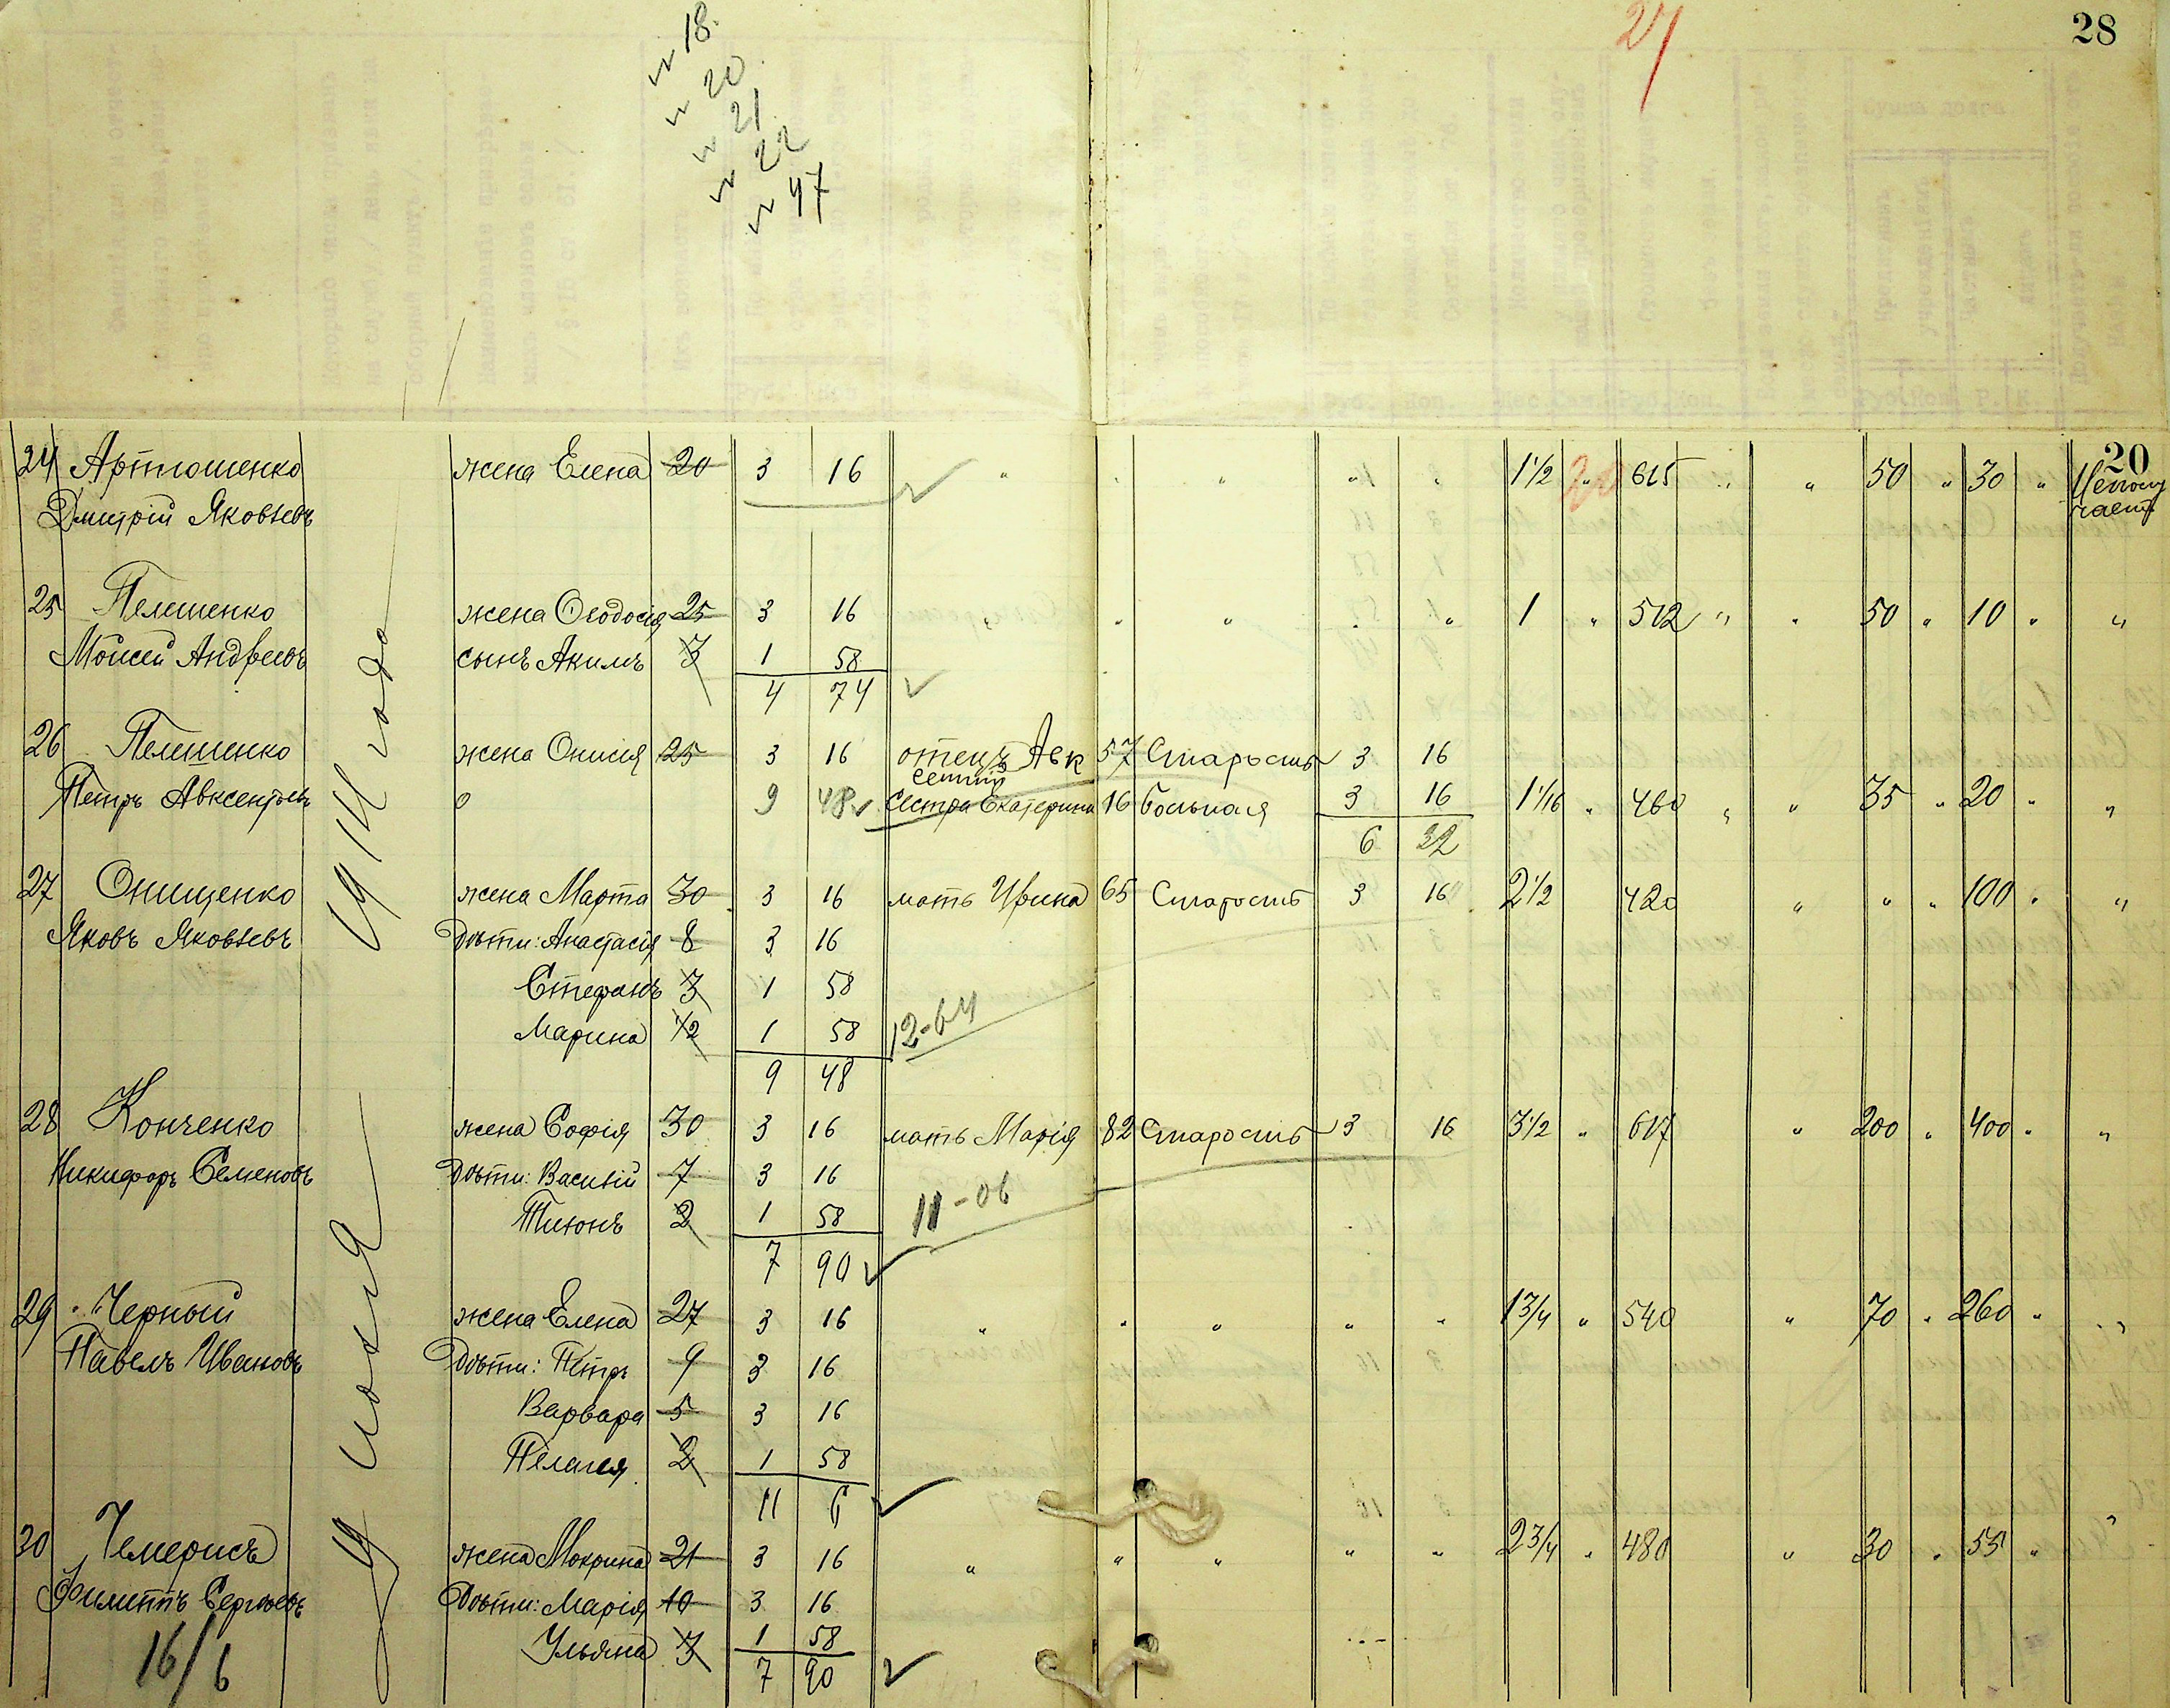 28
27
18.
20
21
22
47
20
24 Артюшенко жена Елена 20 3 16 " " " " " 1 1/2 " 615 " " 50 " 30 "
Дмитрій Яковлевъ
25 Пелешенко жена Ѳеодосія 25 3 16 " " " " " 1 " 512 " " 50 " 10 " "
Моисей Андреевъ сынъ Акимъ 3 1 58
4 74
26 Пелешенко жена Онисія 25 3 16 отецъ Авк 57 Старость 3 16
сентій
Петръ Авксентьевъ 9 48 сестра Екатерина 16 больная 3 16 1 1/16 " 460 " " 35 " 20 " "
6 32
27 Онищенко жена Марта 30 3 16 мать Ирина 65 Старость 3 16 2 1/2 420 " " " 100 " "
Яковъ Яковлевъ Дѣти: Анастасія 8 3 16
Стефанъ 3 1 58
Марина 1/2 1 58 12-64
9 48
28 Конченко жена Софія 30 3 16 мать Марія 82 Старость 3 16 3 1/2 " 617 " 200 " 400 " "
Никифоръ Семеновъ Дѣти: Василій 7 3 16
2 1 58 11-06
7 90
29 Черный жена Елена 27 3 16 " " " " " 1 3/4 " 540 " 70 " 260 " "
Павелъ Ивановъ Дѣти: Петръ 9 3 16
Варвара 5 3 16
Пелагея 2 1 58
11 6
30 Чемерисъ жена Мокрина 21 3 16 " " " " " 2 3/4 " 480 " 30 " 55 " "
Филиппъ Сергѣевъ Дѣти: Марія 10 3 16
Ульяна 3 1 58
7 90
16/6
1914 года